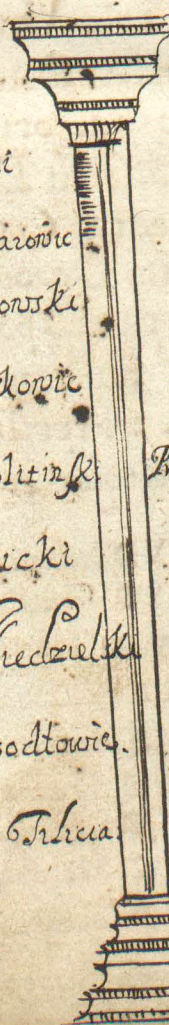 i
arowic
onski
kowic
litinski
icki
iedzielski
sodtowic.
Tilicia.